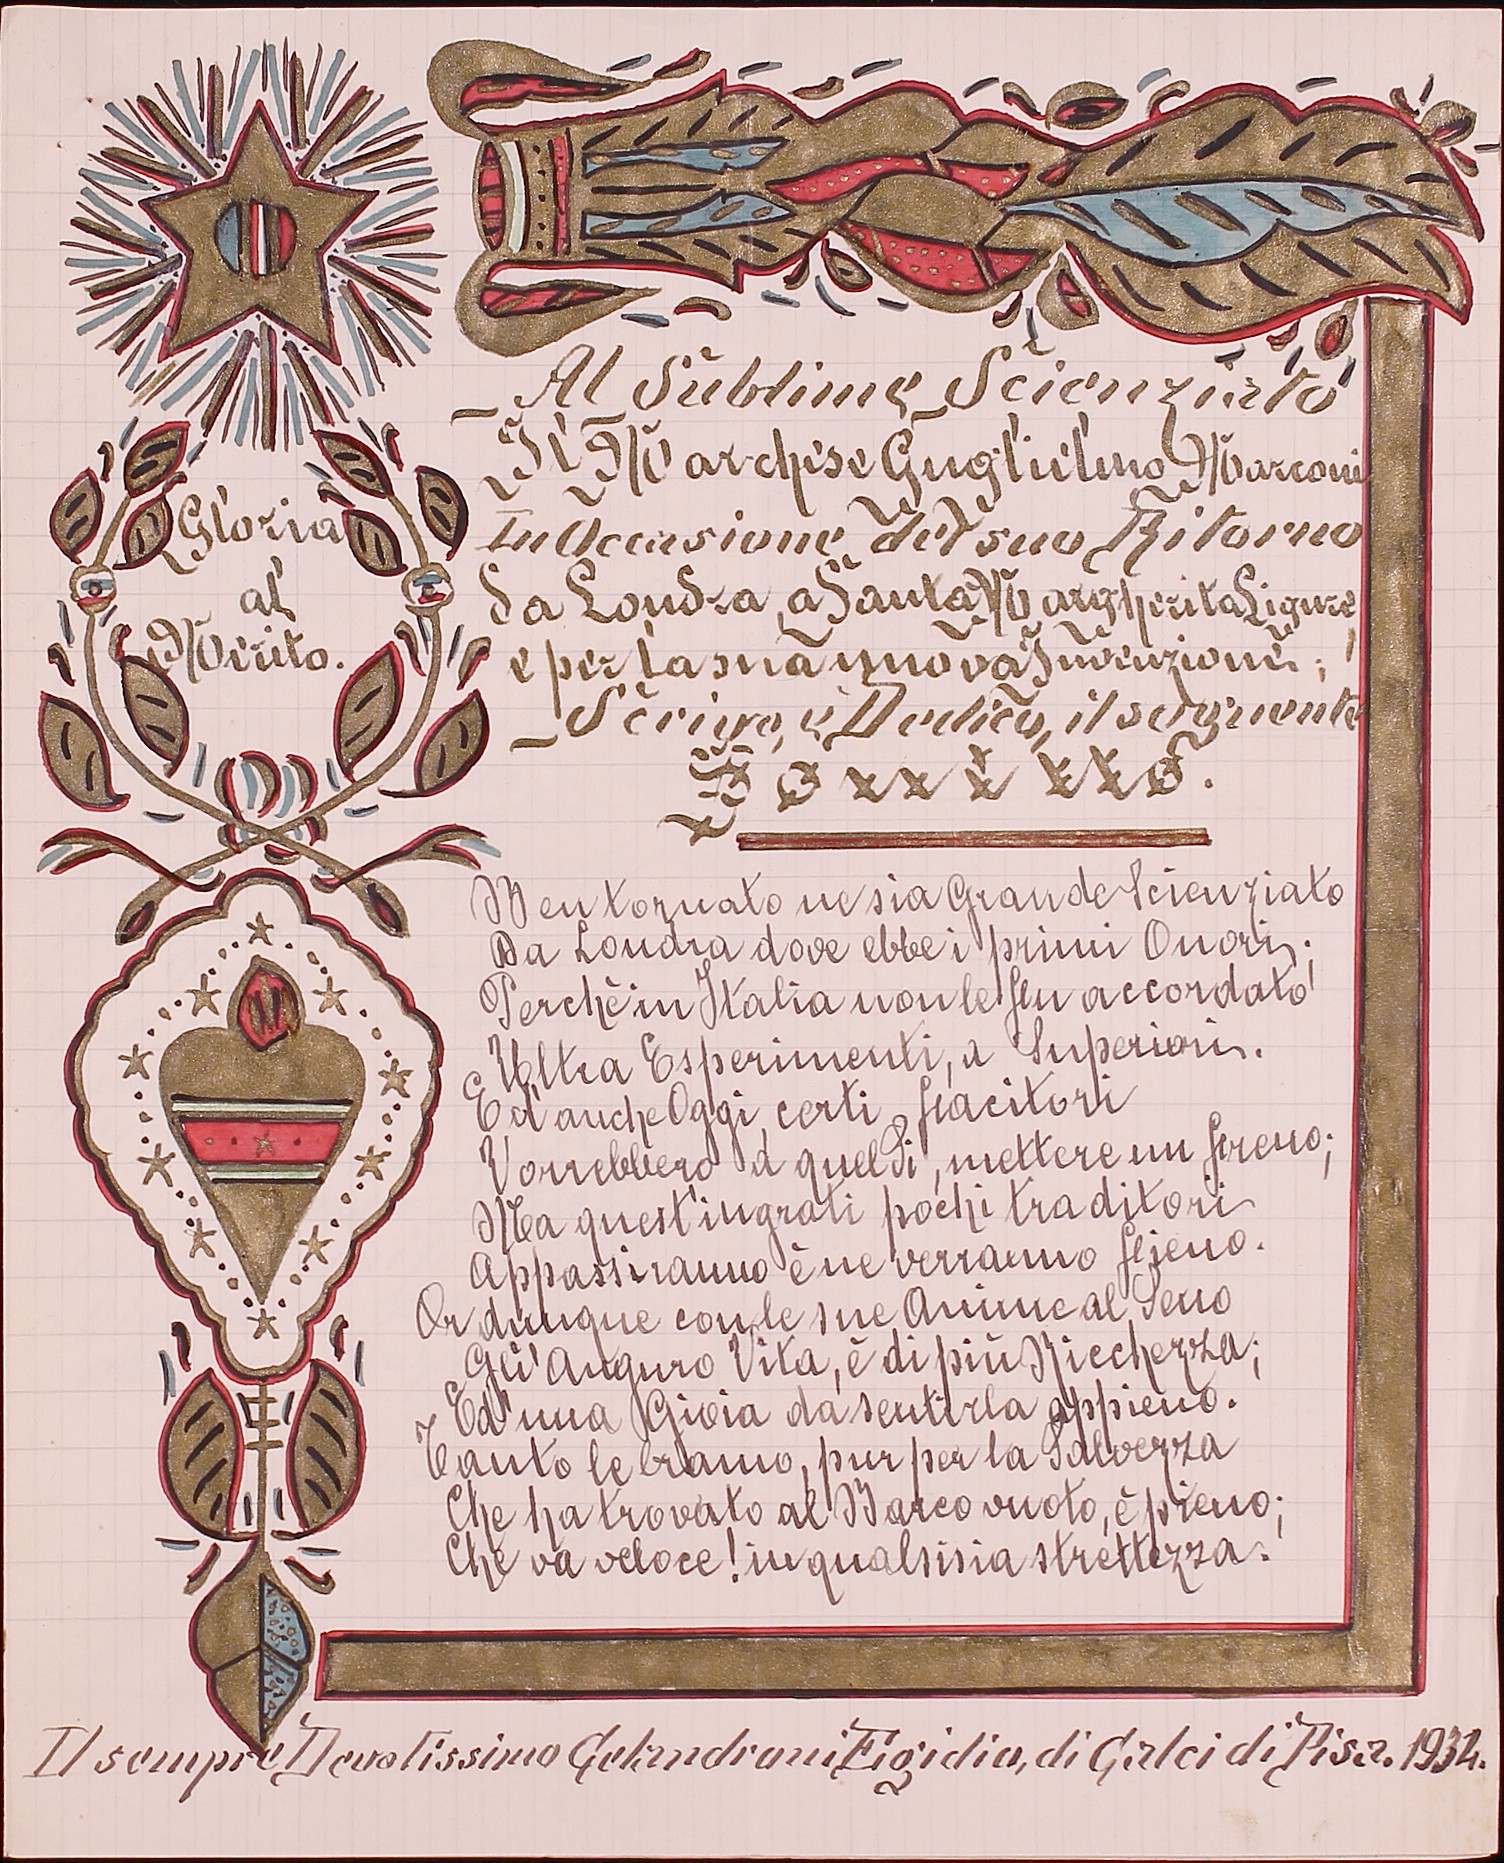 Gloria
al
Merito.
Al Sublime Scienziato
Il Marchese Guglielmo Marconi
In Occasione del suo Ritorno
da Londra, a Santa Margherita Ligure
e per la sua nuova Invenzione;
Scrivo, e Dedico, il seguente
Bentornato ne sia Grande Scienziato
Da Londra dove ebbe i primi Onori;
Perchè in Italia non le fu accordato
Ultra Esperimenti, a Superiori.
Ed' anche Oggi, certi
Vorrebbero a quel Dì, mettere un freno;
Ma quest'ingrati pochi traditori
Appassiranno è ne verranno fieno.
Or dunque con le sue Anime al Seno
Gli' Auguro Vita, è di più Ricchezza;
Ed' una Gioia da sentirla appieno.
Tanto le bramo, pur per la Salvezza
Che ha trovato al Barco vuoto, è pieno;
Che va veloce! in qualsisia strettezza.
Il sempre Devotissimo Gelandroni Egidio, di Calci di Pisa. 1934.